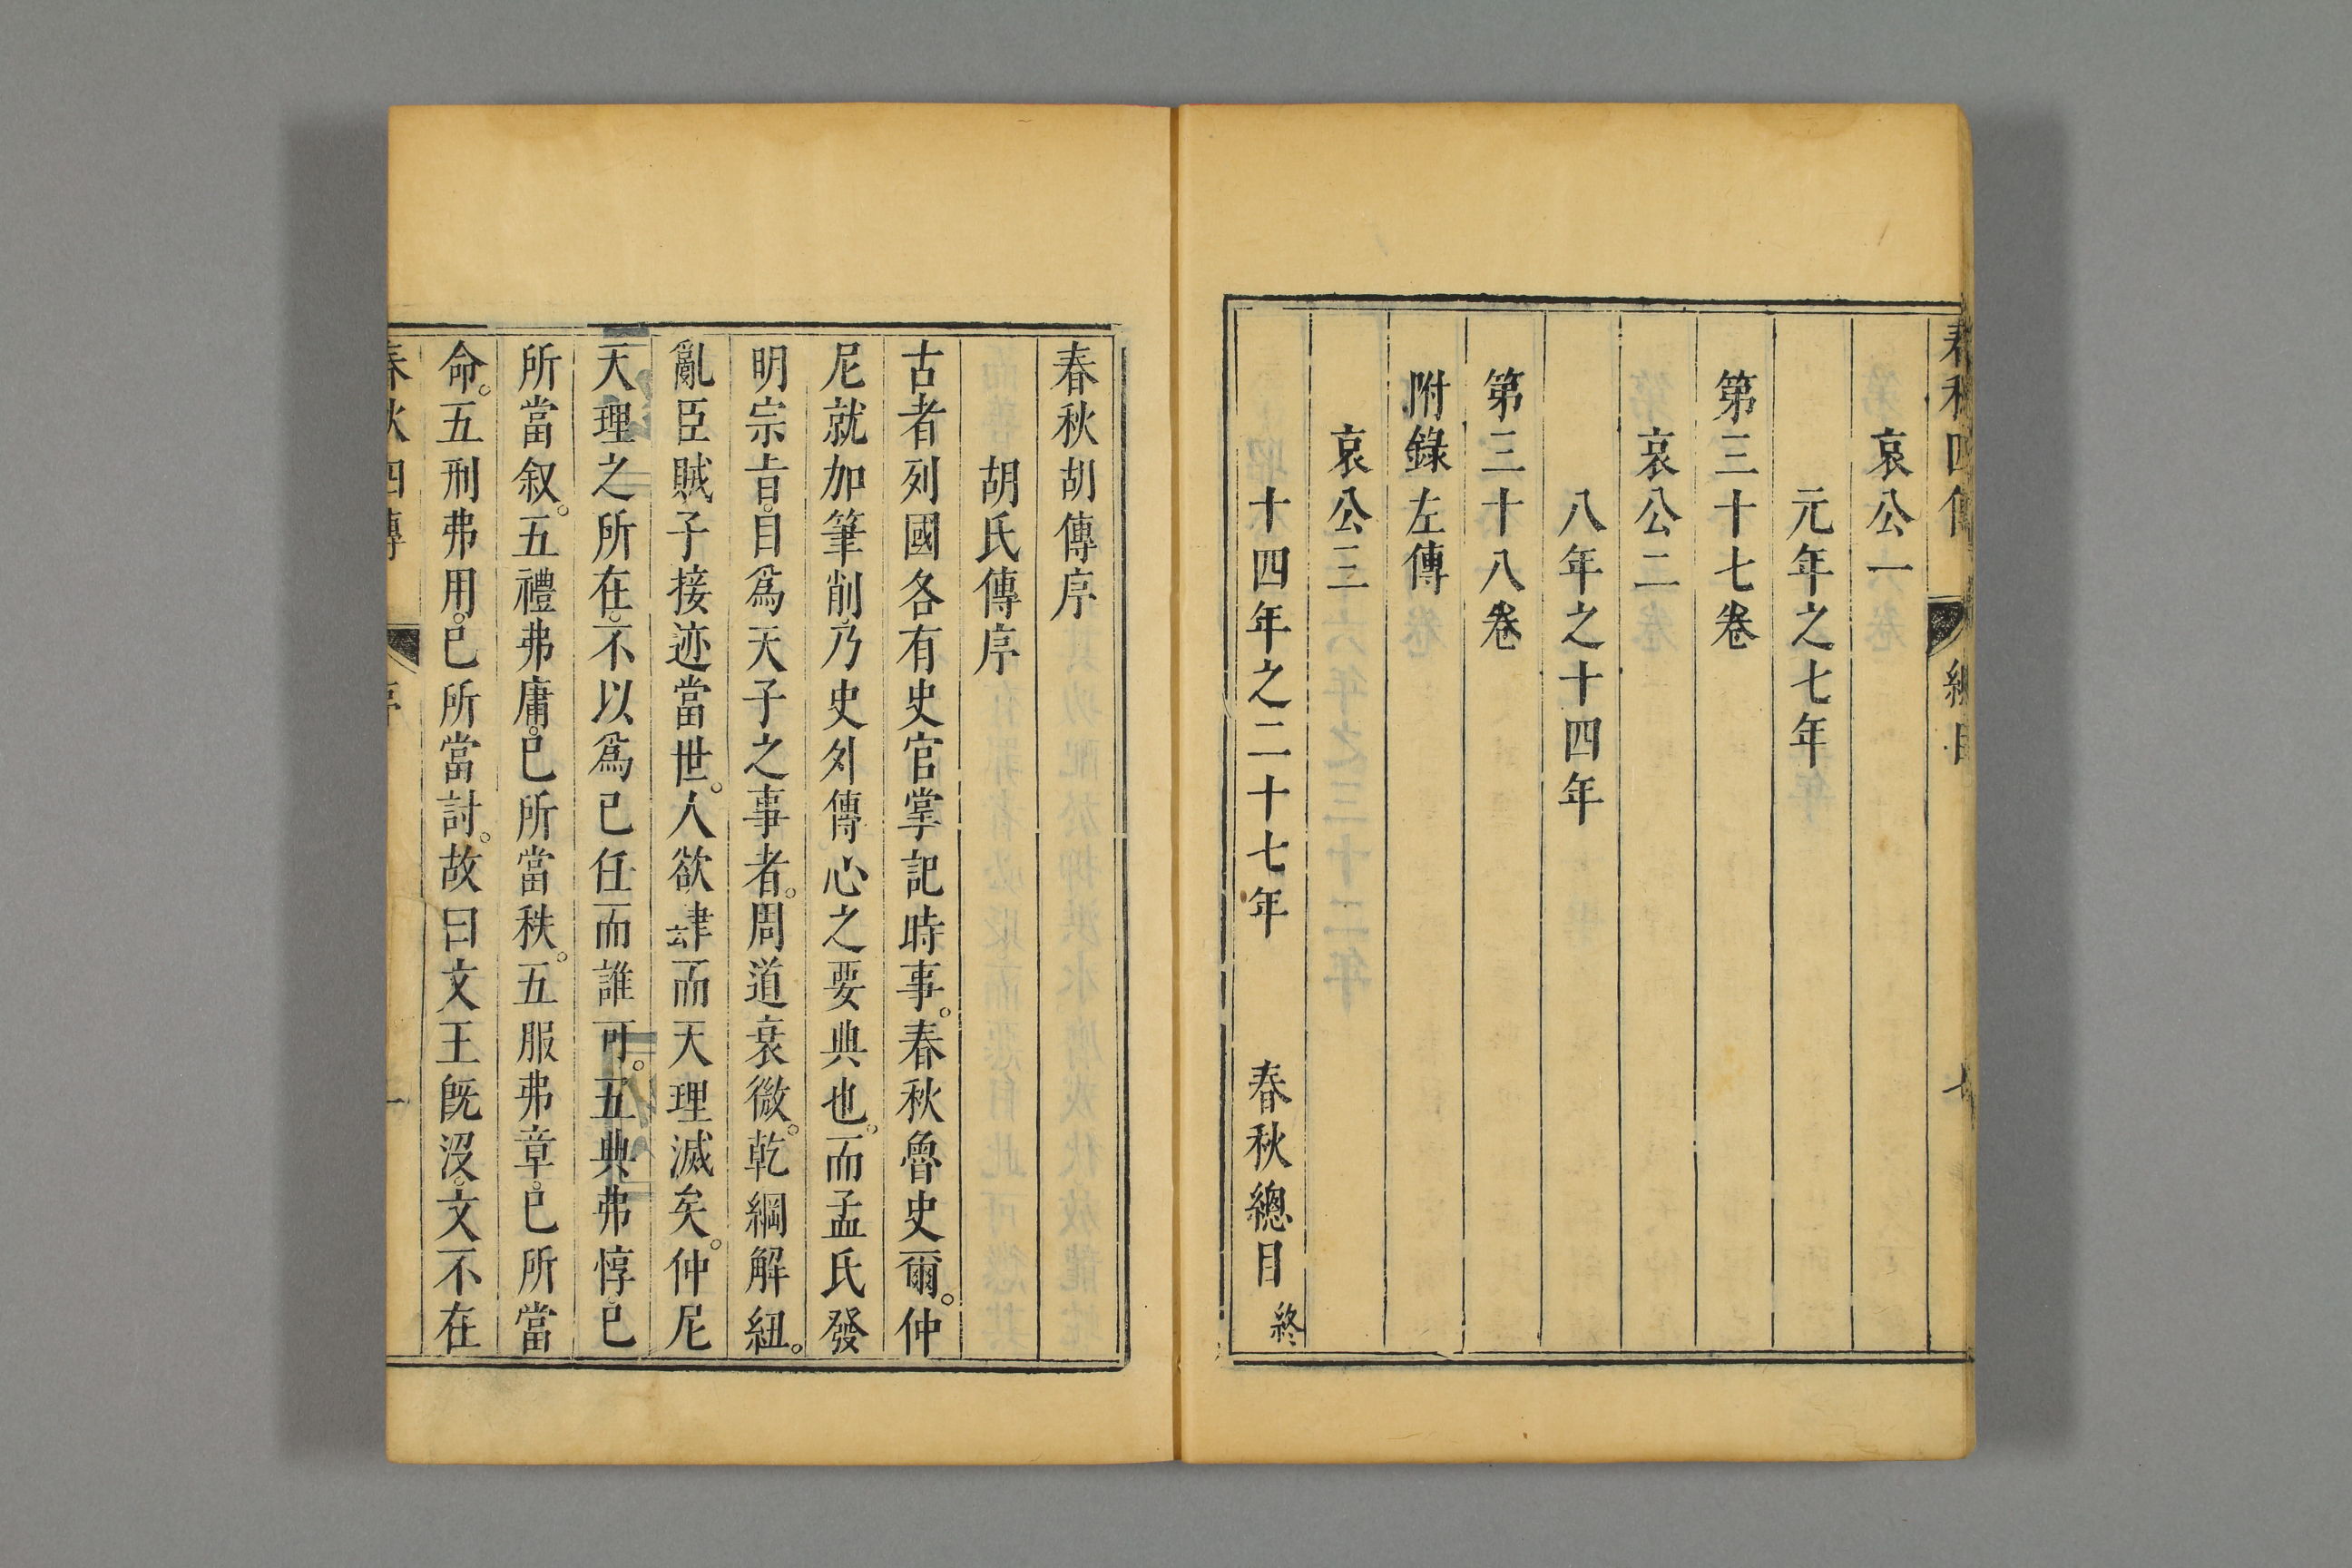 春秋四傳 總目 七
哀公一
元年之七年
第三十七卷
哀公二
八年之十四年
第三十八卷
附錄左傳
哀公三
十四年之二十七年 春秋總目終
春秋胡傳序
胡氏傳序
古者列國各有史官掌記時事。春秋魯史爾。仲
尼就加筆削。乃史外傳心之要典也。而孟氏發
明宗旨。目爲天子之事者。周道衰微。乾綱解紐。
亂臣賊子接迹當世。人欲肆而天理滅矣。仲尼
天理之所在。不以爲己任而誰可。五典弗惇。己
所當叙。五禮弗庸。己所當秩。五服弗章。己所當
命。五刑弗用。己所當討。故曰文王旣沒。文不在
春秋四傳 序 一